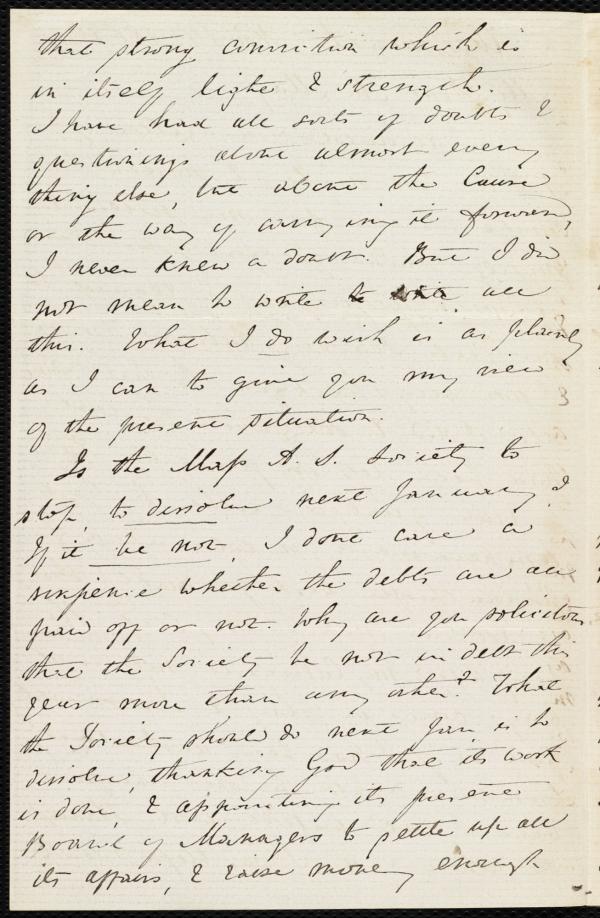 that strong conviction which is
in itself light & strength.
I have had all sorts of doubts &
questionings about almost every
thing else, but about the Cause
or the way of carrying it forward,
I never knew a doubt. But I did
not mean to write all
this. What I do wish is as plainly
as I can to give you my view
of the present situation.
Is the Mass A. S. Society to
stop, to dissolve next January?
If it be not, I dont care a
sixpence whether the debts are all
paid off or not. Why are you solicitous
that the Society be not in debt this
year more than any other? What
the Society should do next Jan, is to
dissolve, thanking God that its work
is done, & appointing its present
Board of Managers to settle up all
its affairs, & raise money enough